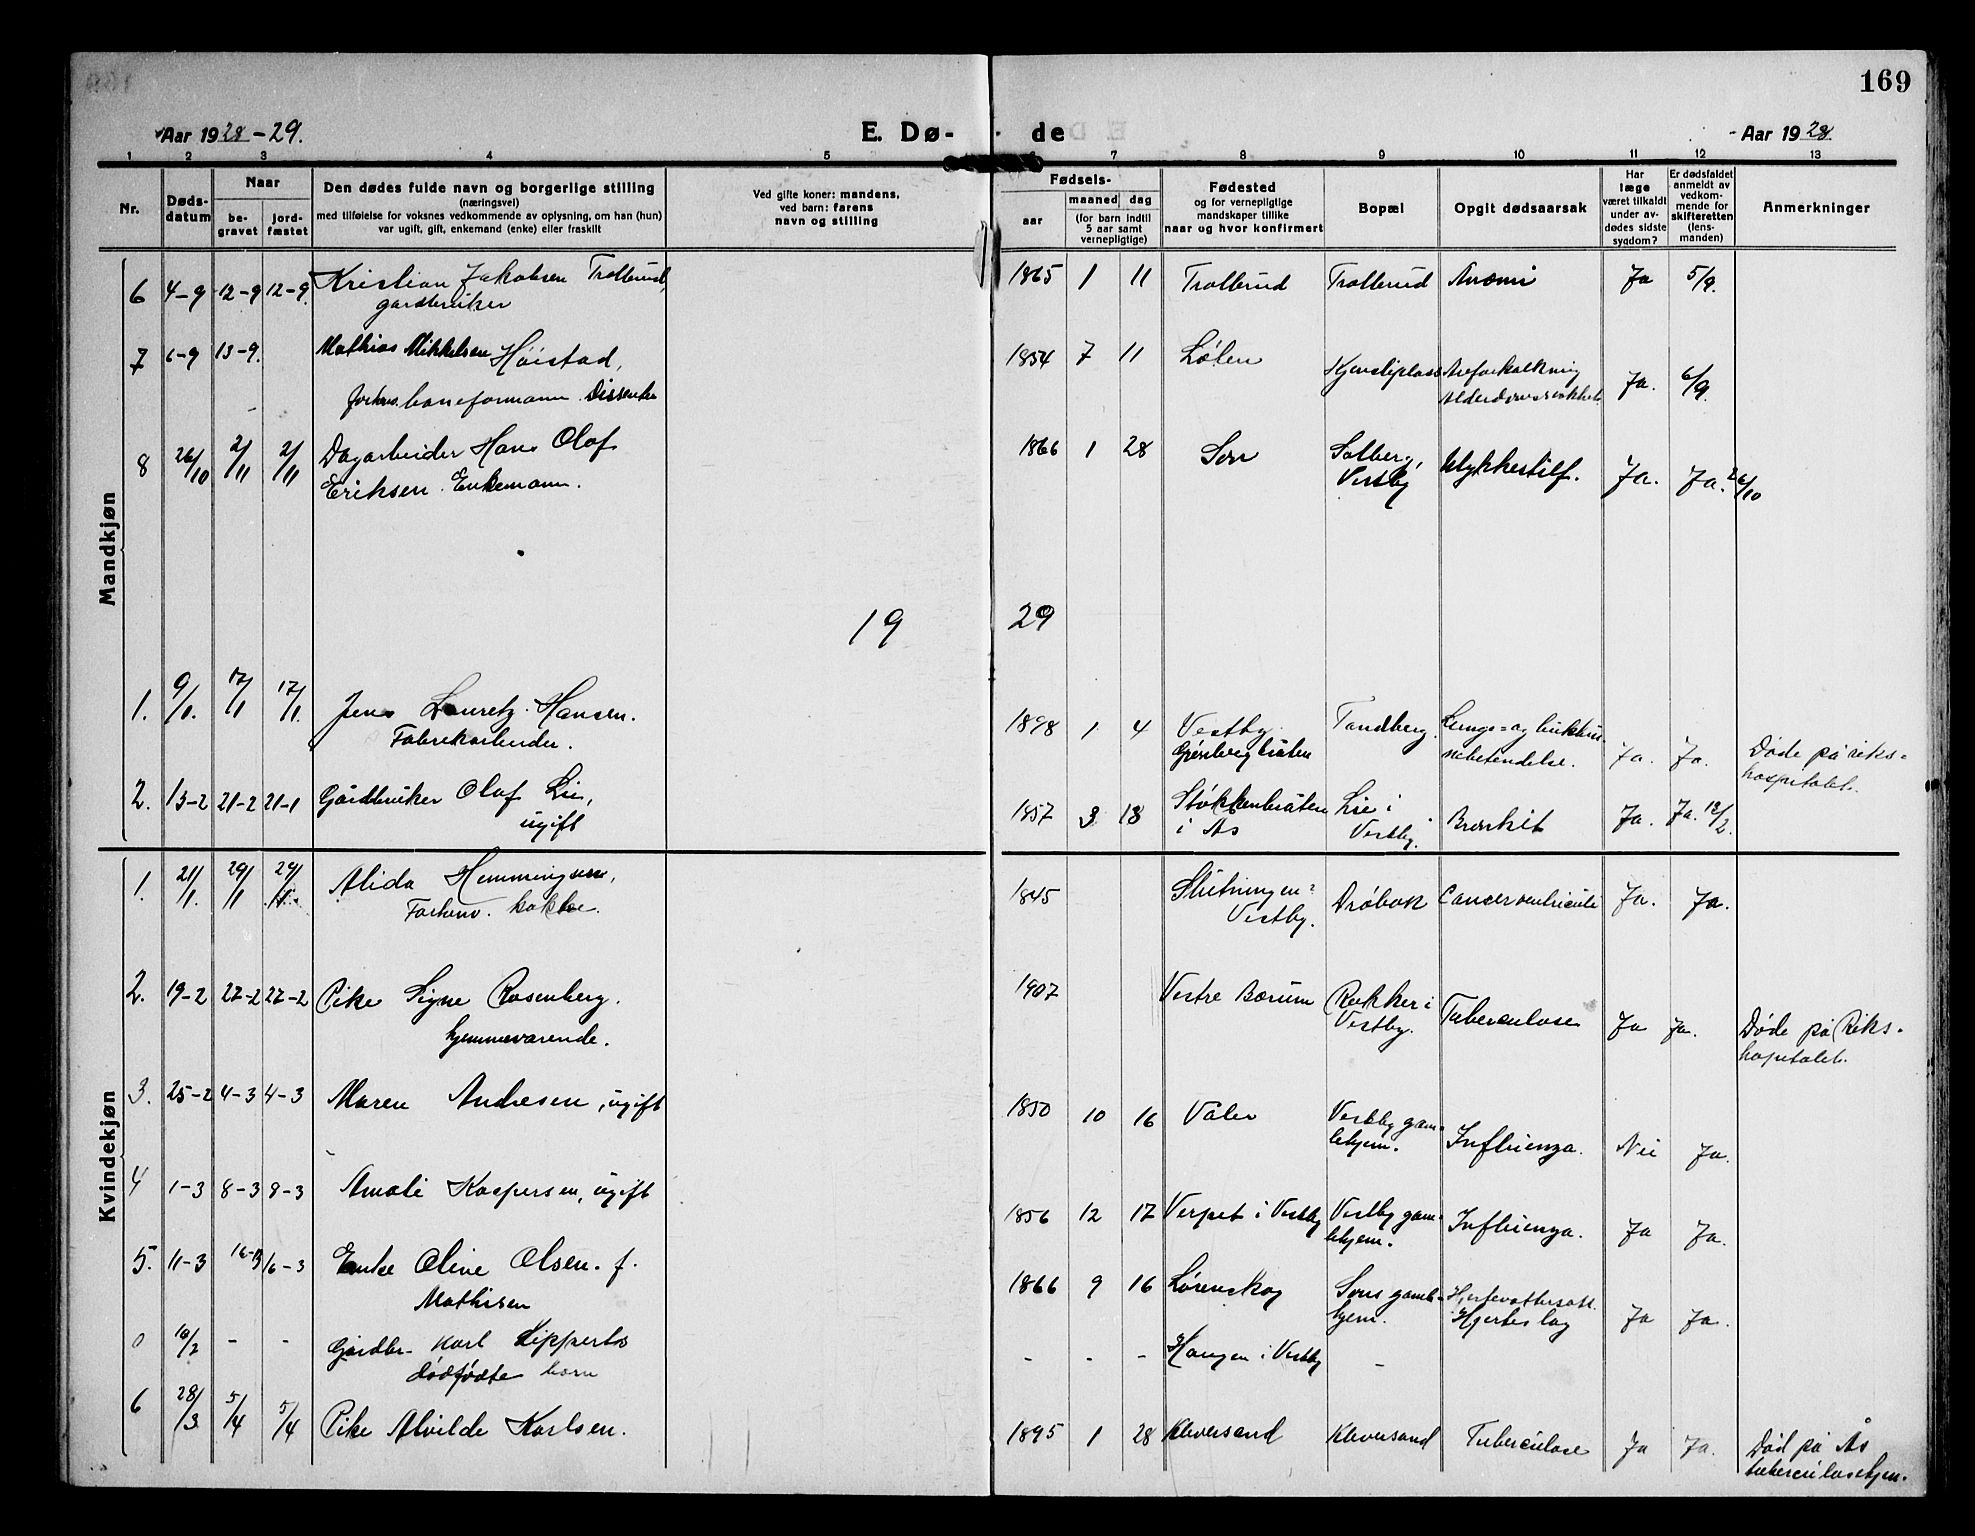 169
Aar 1928-29.
E. Dø-
de
Aar 1928
1 2 3 4 5 6 7 8 9 10 11 12 13
Nr.
Døds-
datum
Naar
be-
gravet
jord-
fæstet
Den dødes fulde navn og borgerlige stilling
(næringsvei)
med tilføielse for voksnes vedkommende av oplysning, om han (hun)
var ugift, gift, enkemand (enke) eller fraskilt
Ved gifte koner: mandens,
ved barn: farens
navn og stilling
Fødsels-
aar
maaned dag
(for barn indtil
5 aar samt
vernepligtige)
Fødested
og for vernepligtige
mandskaper tillike
naar og hvor konfirmert
Bopæl
Opgit dødsaarsak
Har
læge
været tilkaldt
under av-
dødes sidste
sygdom?
Er dødsfaldet
anmeldt av
vedkom-
mende for
skifteretten
(lens-
manden)
Anmerkninger
Mandkjøn
6 4-9 12-9 12-9 Kristian Jakobsen Trollerud,
gardbruker
1865 1 11 Trollerud Trollerud Anæmi Ja 5/9.
7 6-9 13-9. Mathias Mikkelsen Höistad,
forhenv. baneformann. Dissenter
1854 7 11 Løten Ja. 6/9.
Areforkalkning
8 26/10 2/11 2/11 Dagarbeider Hans Olaf
Eriksen. Enkemann.
1866 1 28 Son Solberg, Ulykkestilf. Ja. Ja. 26/10
Vestby
19 29
1. 9/1. 17/1 17/1. Jens Lauretz Hansen.
Fabrikarbeider.
1898 1 4 Vestby. Tandberg. Lunge- og
Grønberg bråten Ja. Ja. Døde på riks-
hospitalet.
2. 13-2 21-2 21-1 Gårdbruker Olaf Lie,
ugift
1857 3 18 Støkkenbråten Lie i Bronkit Ja. Ja. 13/2.
i Ås Vestby.
Kvindekjøn
1. 21/1. 29/1 29/1. Alida Hemmingsen,
Forhenv. kokke.
1845 Slutningen? Drøbak Cancer ventriculi Ja. Ja.
Vestby.
2. 19-2 27-2 27-2 Pike Signe Rosenberg.
hjemmeværende.
1907 Vestre Bærum Rukker i Tuberculose Ja Ja. Døde på Riks-
Vestby. hospitalet.
3. 25-2 4-3 4-3 Maren Andresen, ugift
1850 10 16 Våler Vestby gam- Influenza. Nei Ja.
lehjem.
4 1-3 8-3 8-3 Amalie Kaspersen, ugift
1856 12 17 Verpet i Vestby Vestby gam- Influenza. Ja Ja.
lehjem.
5. 11-3 16-3 16-3 Enke Oline Olsen. f.
Mathisen
1866 9 16 Lørenskog Sons gamle-
hjem. Hjerteslag Ja Ja.
0 10/2 - - Gårdbr. Karl Lipperts
dødfødte barn
- - - Haugen i Vestby -
6 28/3 5/4 5/4 Pike Alvilde Karlsen.
1895 1 28 Kleversand Kleversand Tuberculose Ja Ja. Død på Ås
tuberculosehjem.